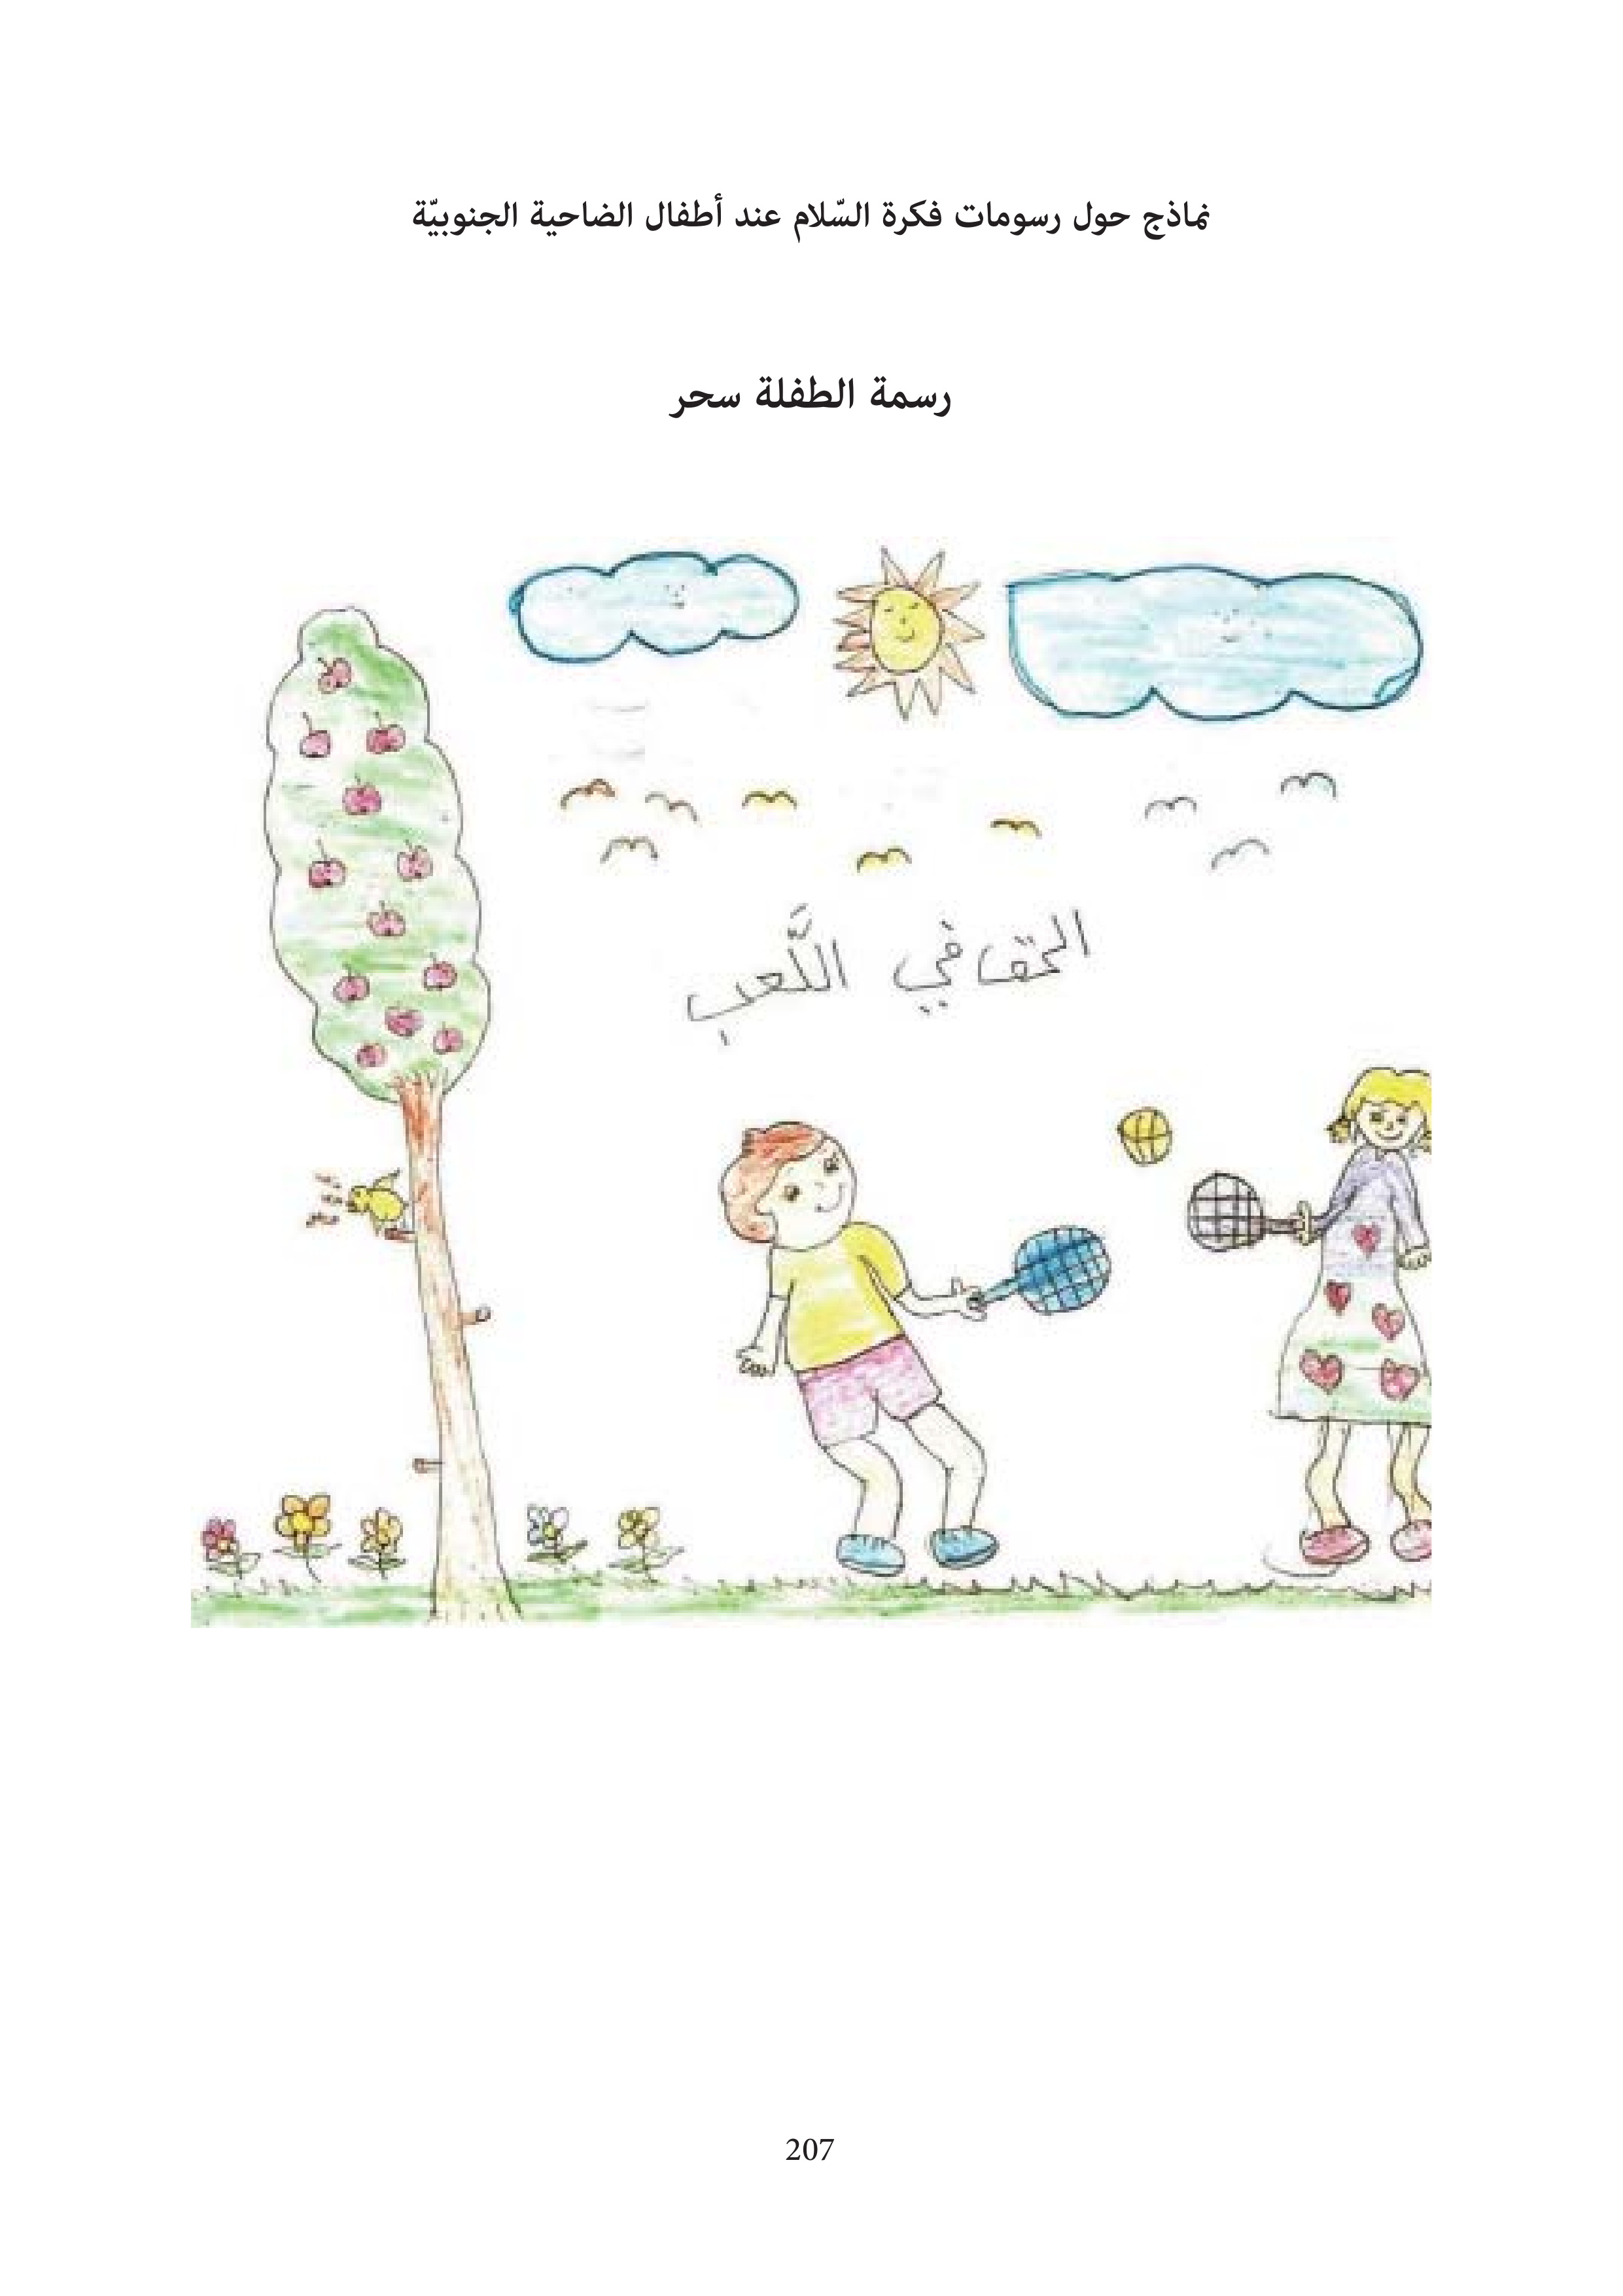 نماذج حول رسومات فكرة السّلام عند أطفال الضاحية الجنوبيّة
رسمة الطفلة سحر
الحق في اللَّعب
207